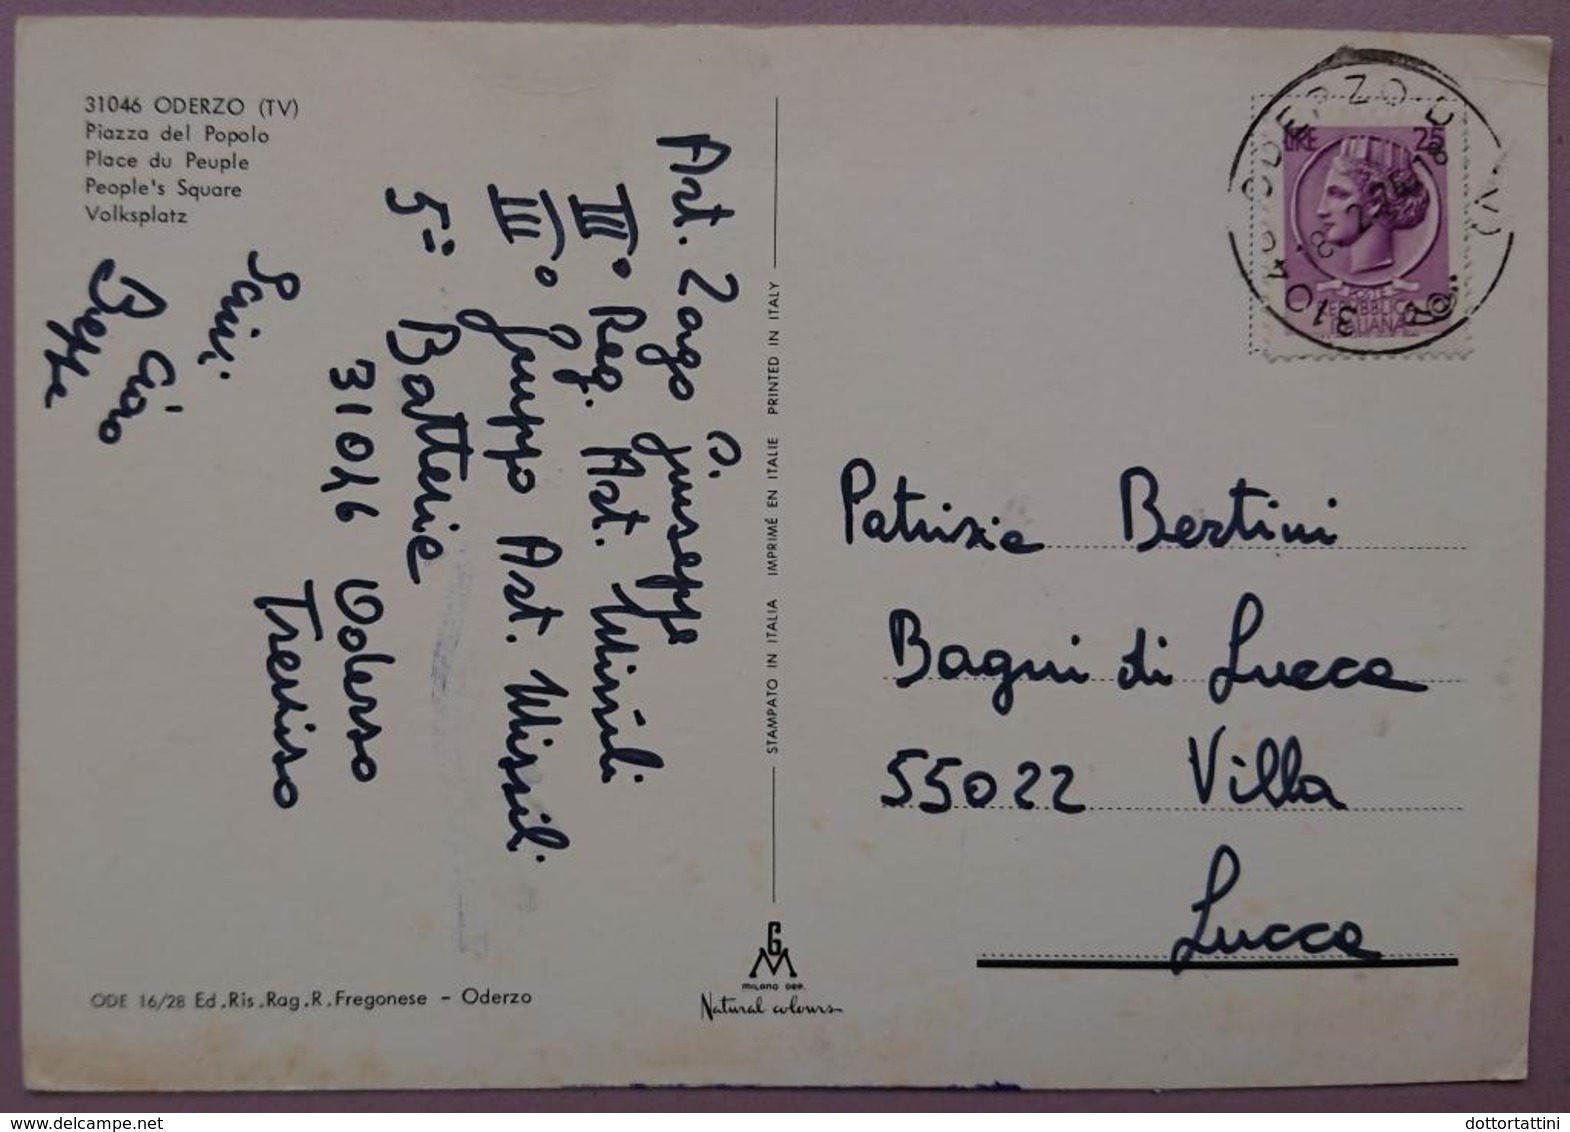 31046 ODERZO (TV)
Piazza del Popolo
Place du Peuple
People's Square
Volksplatz
Art. Zago G. Giuseppe
III° Reg. Art. Missili
III° Gruppo Art. Missili
5ª Batteria
31046 Oderzo
Treviso
Ciao
Beppe
STAMPATO IN ITALIA IMPRIMÉ EN ITALIE PRINTED IN ITALY
LIRE 25
REPUBBLICA
ITALIANA
31046 ODERZO (TV)
Patrizia Bertini
Bagni di Lucca
55022 Villa
Lucca
GM
MILANO DEP.
Natural colours
ODE 16/28 Ed.Ris.Rag.R.Fregonese - Oderzo
www.delcampe.net
dottortattini